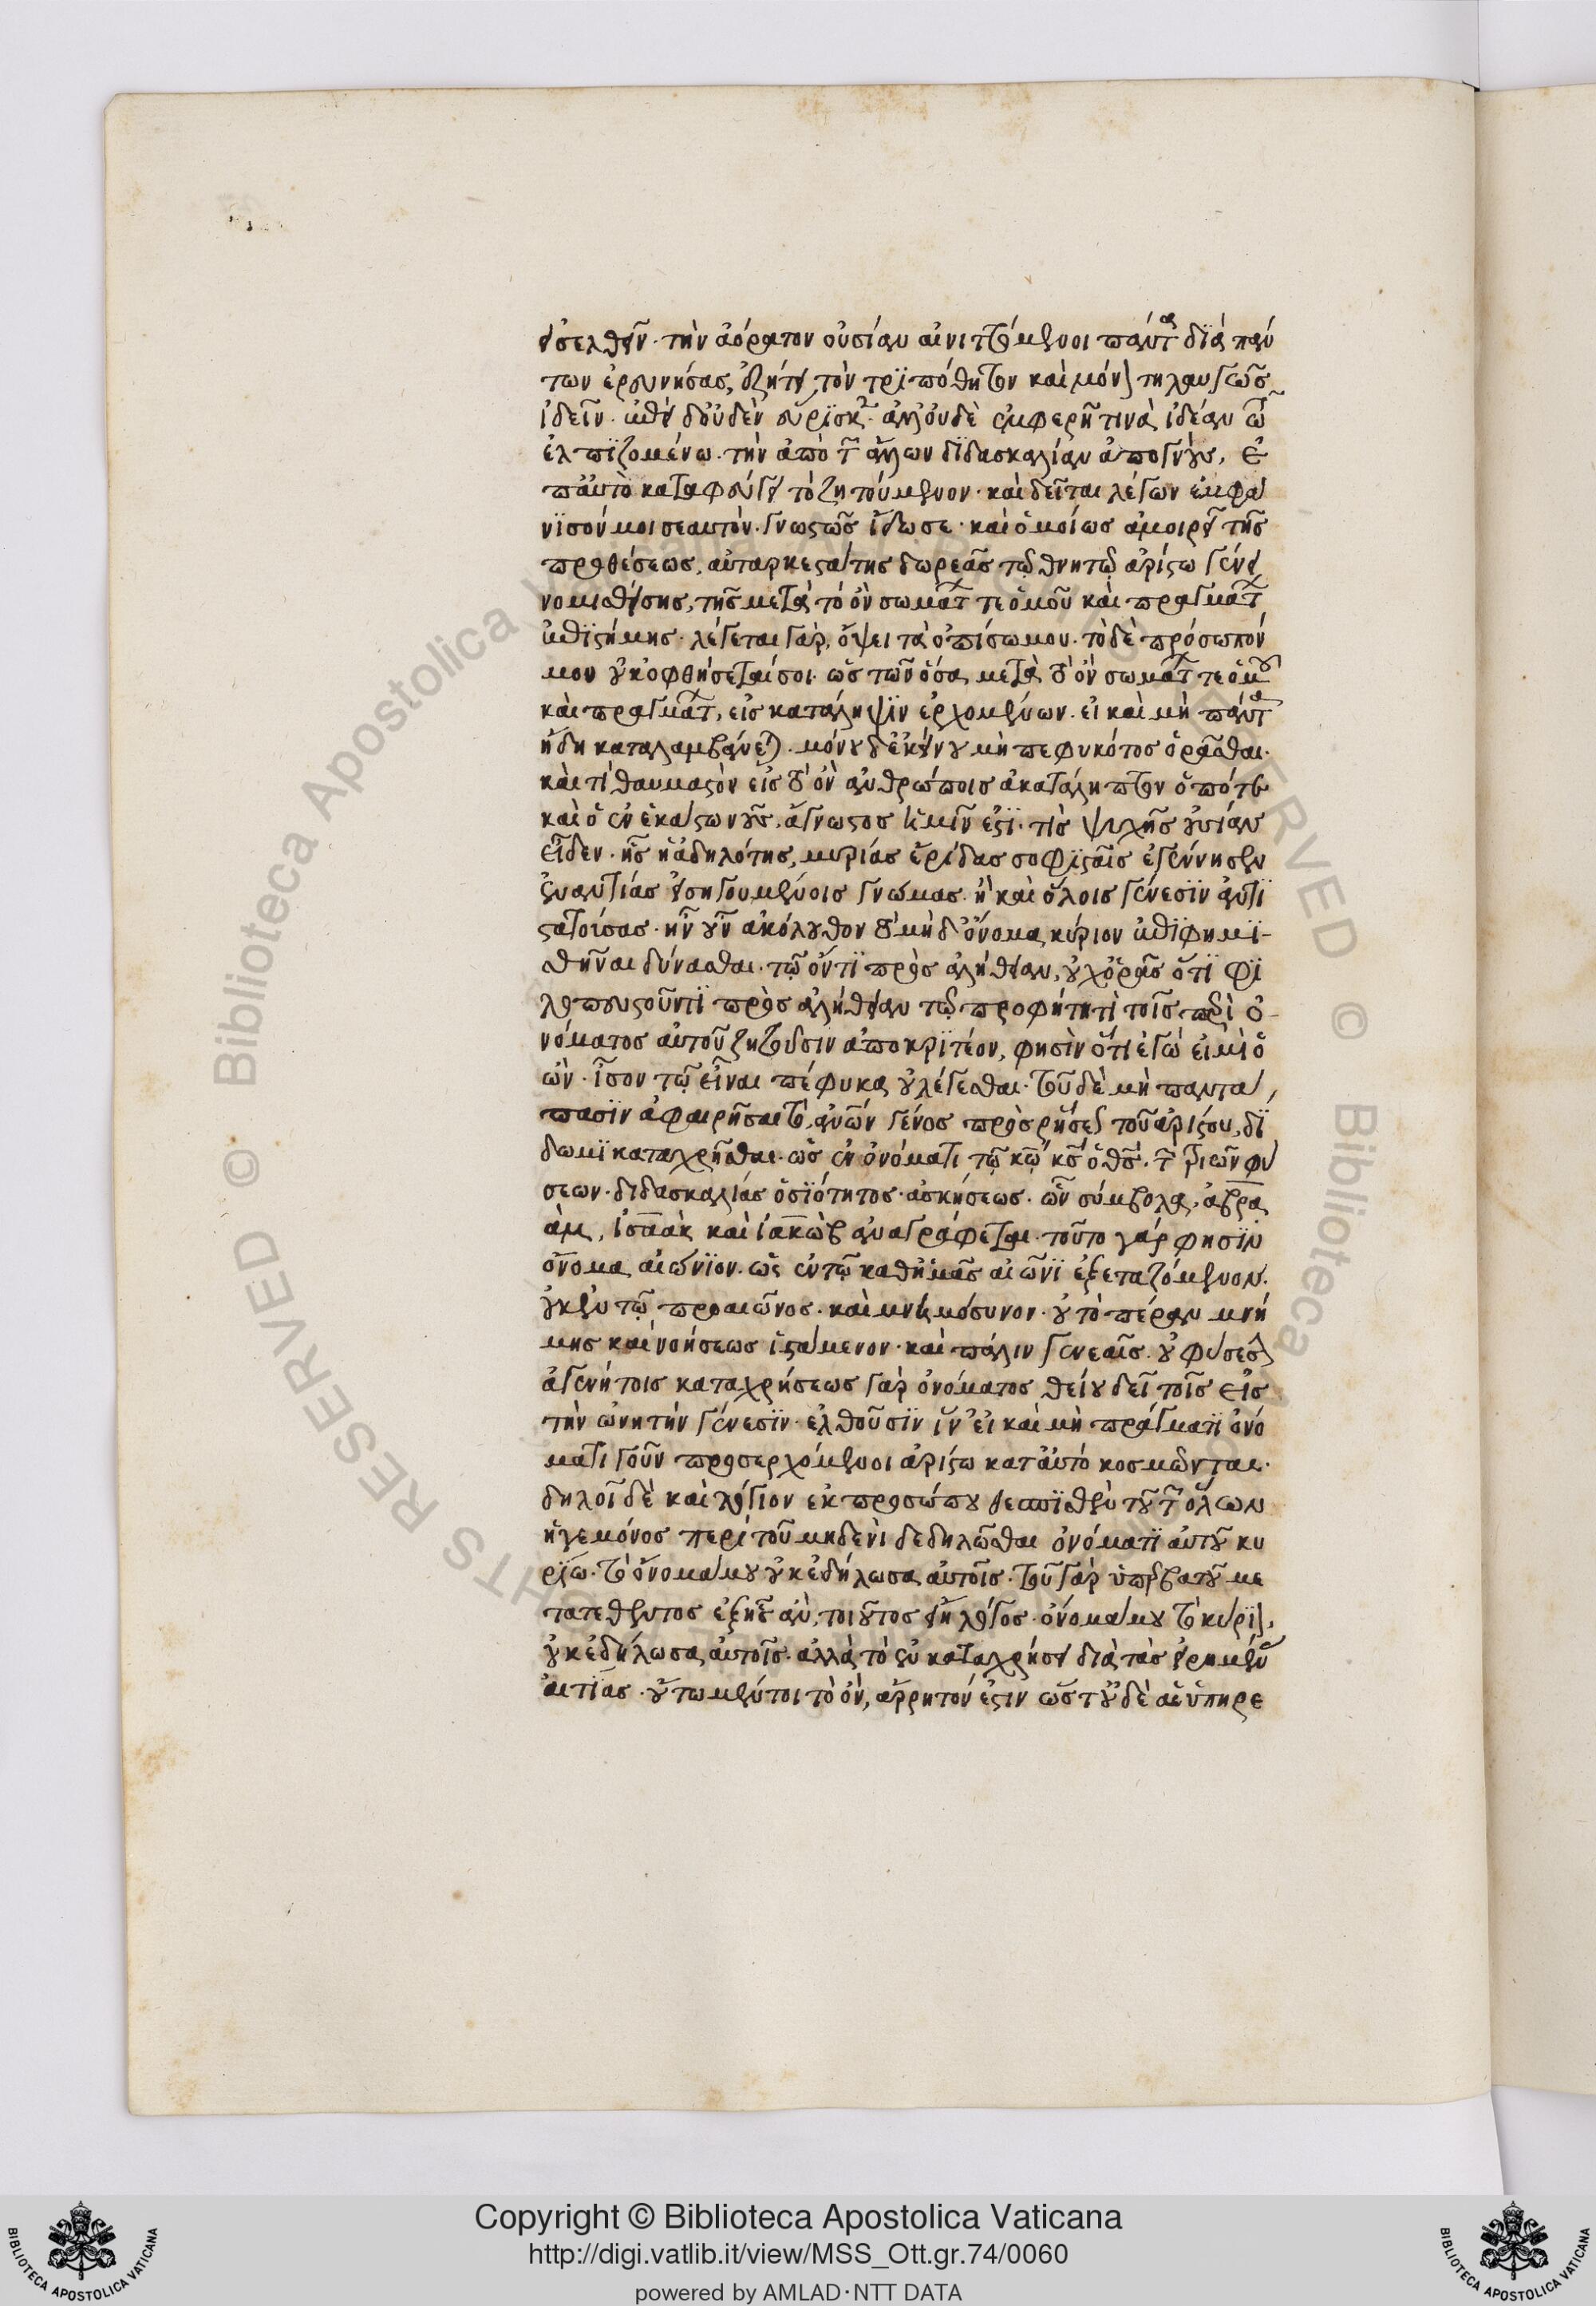 εἰσελθεῖν· τὴν ἀόρατον οὐσίαν αἰνιττόμενοι πάντα διὰ πάν
των ἐρευνήσας, ἐζήτει τὸν τριπόθητον καὶ μόνον τηλαυγῶς
ἰδεῖν· ἐπεὶ δ' οὐδὲν εὕρισκεν ἀλλ' οὐδὲ ἐμφερῆ τινὰ ἰδέαν τῶ
ἐλπιζομένω· τὴν ἀπὸ τῶν ἄλλων διδασκαλίαν ἀπογνοὺς, ἐ
π' αὐτὸ καταφεύγει τὸ ζητούμενον· καὶ δεῖται λέγων ἐμφά
νισόν μοι σεαυτὸν· γνωστῶς ἴδω σε· καὶ ὁμοίως ἀμοιρεῖ τῆς
προθέσεως, αὐτάρκεστάτης δωρεᾶς τῶ θνητῶ ἀρίστω γένει
νομισθείσης, τῆς μετὰ τὸ ὂν σωμάτων τε ὁμοῦ καὶ πραγμάτων
ἐπιστήμης· λέγεται γὰρ, ὄψει τὰ ὀπίσω μου· τὸ δὲ πρόσωπόν
μου οὐκ ὀφθήσεταί σοι· ὡς τῶν ὅσα μετὰ τὸ ὂν σωμάτων τε ὁμοῦ
καὶ πραγμάτων, εἰς κατάληψιν ἐρχομένων· εἰ καὶ μὴ πάντα
ἤδη καταλαμβάνεται· μόνου δ' ἐκείνου μὴ πεφυκότος ὁρᾶσθαι·
καὶ τί θαυμαστὸν εἰς τὸ ὂν ἀνθρώποις ἀκατάληπτον ὁπότε
καὶ ὁ ἐν ἑκάστω νοῦς, ἄγνωστος ἡμῖν ἐστι· τίς ψυχῆς οὐσίαν
εἶδεν· ἧς ἡ ἀδηλότης, μυρίας ἔριδας σοφισταῖς ἐγέννησεν
ἐναντίας εἰσηγουμένοις γνώμας· ἢ καὶ ὅλοις γένεσιν ἀντι
στατούσας· ἦν οὖν ἀκόλουθον τὸ μὴ δ' ὄνομα κύριον ἐπιφημι-
σθῆναι δύνασθαι· τῶ ὄντι πρὸς ἀλήθειαν, οὐχ ὁρᾶς ὅτι φι
λοπευστοῦντι πρὸς ἀλήθειαν τῶ προφήτη τί τοῖς περὶ ὀ
νόματος αὐτοῦ ζητοῦσιν ἀποκριτέον, φησὶν ὅτι ἐγώ εἰμι ὁ
ὤν· ἴσον τῶ εἶναι πέφυκα οὐ λέγεσθαι· τοῦ δὲ μὴ παντά
πασιν ἀφαιρῆσαι τὸ ἀνθρώπων γένος προσρήσεως τοῦ ἀρίστου, δί
δωμι καταχρῆσθαι· ὡς ἐν ὀνόματι τῶ κω κς ὁ θς· τῶν τριῶν φύ
σεων· διδασκαλίας ὁσιότητος· ἀσκήσεως· ὧν σύμβολα, ἀβρα
ὰμ, ἰσαὰκ καὶ ἰακὼβ ἀναγράφεται· τοῦτο γάρ φησιν
ὄνομα αἰώνιον· ὡς ἐν τῶ καθ' ἡμᾶς αἰῶνι ἐξεταζόμενον·
οὐκ ἐν τῶ πρὸ αἰῶνος· καὶ μνημόσυνον· οὐ τὸ πέραν μνή
μης καὶ νοήσεως ἱστάμενον· καὶ πάλιν γενεαῖς· οὐ φύσεσιν
ἀγενήτοις καταχρήσεως γὰρ ὀνόματος θείου δεῖ τοῖς εἰς
τὴν θνητὴν γένεσιν· ἐλθοῦσιν ἵν' εἰ καὶ μὴ πράγματι ὀνό
ματι γοῦν προσερχόμενοι ἀρίστω κατ' αὐτὸ κοσμῶνται·
δηλοῖ δὲ καὶ λόγιον ἐκ προσώπου θεσπισθὲν τοῦ τῶν ὅλων
ἡγεμόνος περὶ τοῦ μηδενὶ δεδηλῶσθαι ὀνόματι αὐτοῦ κυ
ρίω· τὸ ὄνομά μου οὐκ ἐδήλωσα αὐτοῖς· τοῦ γὰρ ὑπερβατοῦ με
τατεθέντος ἑξῆς ἂν, τοιοῦτος εἴη λόγος· ὄνομά μου τὸ κύριον,
οὐκ ἐδήλωσα αὐτοῖς· ἀλλὰ τὸ ἐν καταχρήσει διὰ τὰς εἰρημένας
αἰτίας· οὕτω μέντοι τὸ ὂν, ἄρρητόν ἐστιν ὥστ' οὐδὲ αἱ ὑπηρε